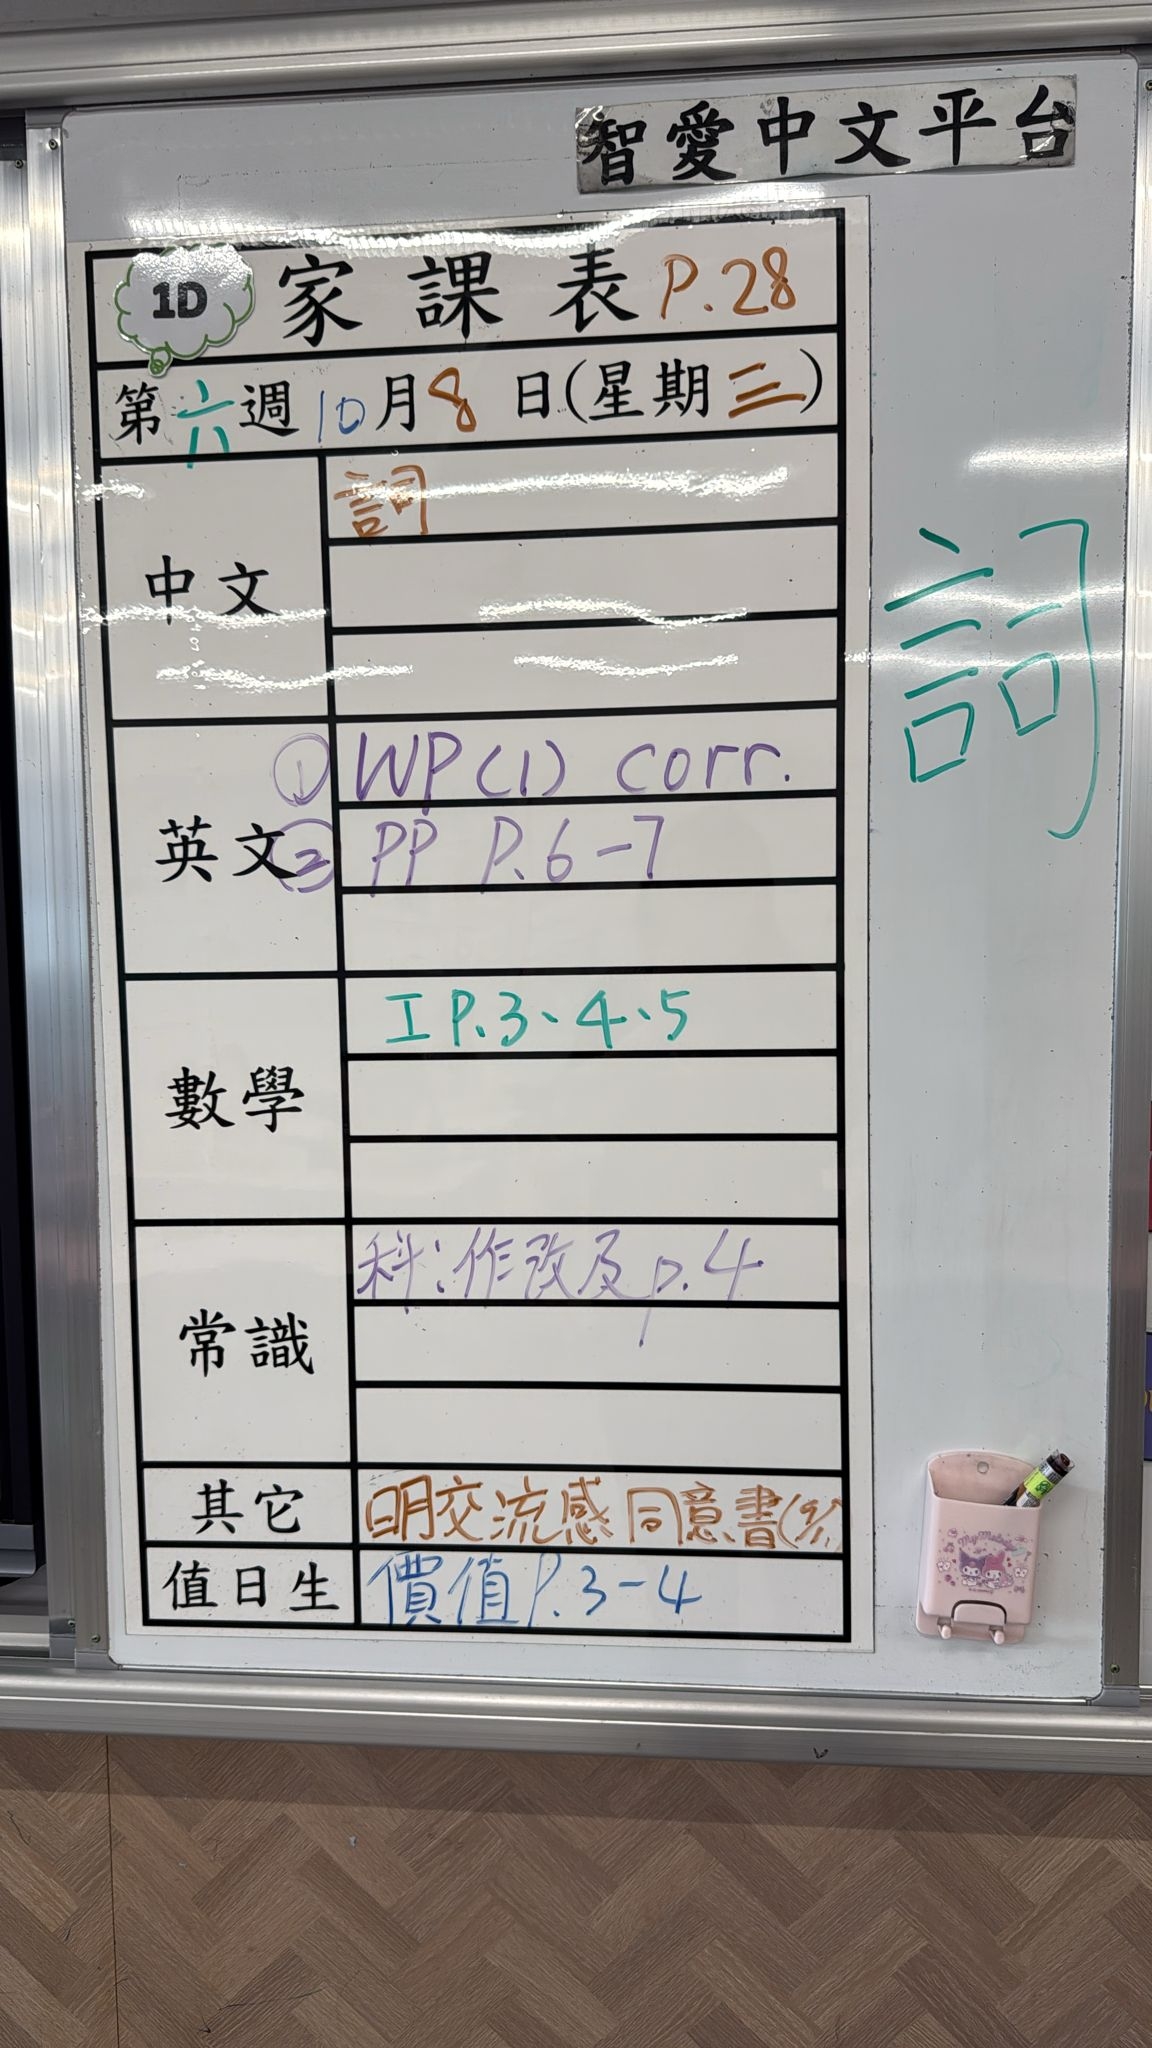 智愛中文平台
1D 家課表 P.28
第六週 10月8日(星期三)
中文
詞
詞
英文
① WP(1) corr.
② PP P.6-7
數學
I P.3、4、5
常識
科:作改及p.4
其它
明交流感同意書
值日生
價值P.3-4